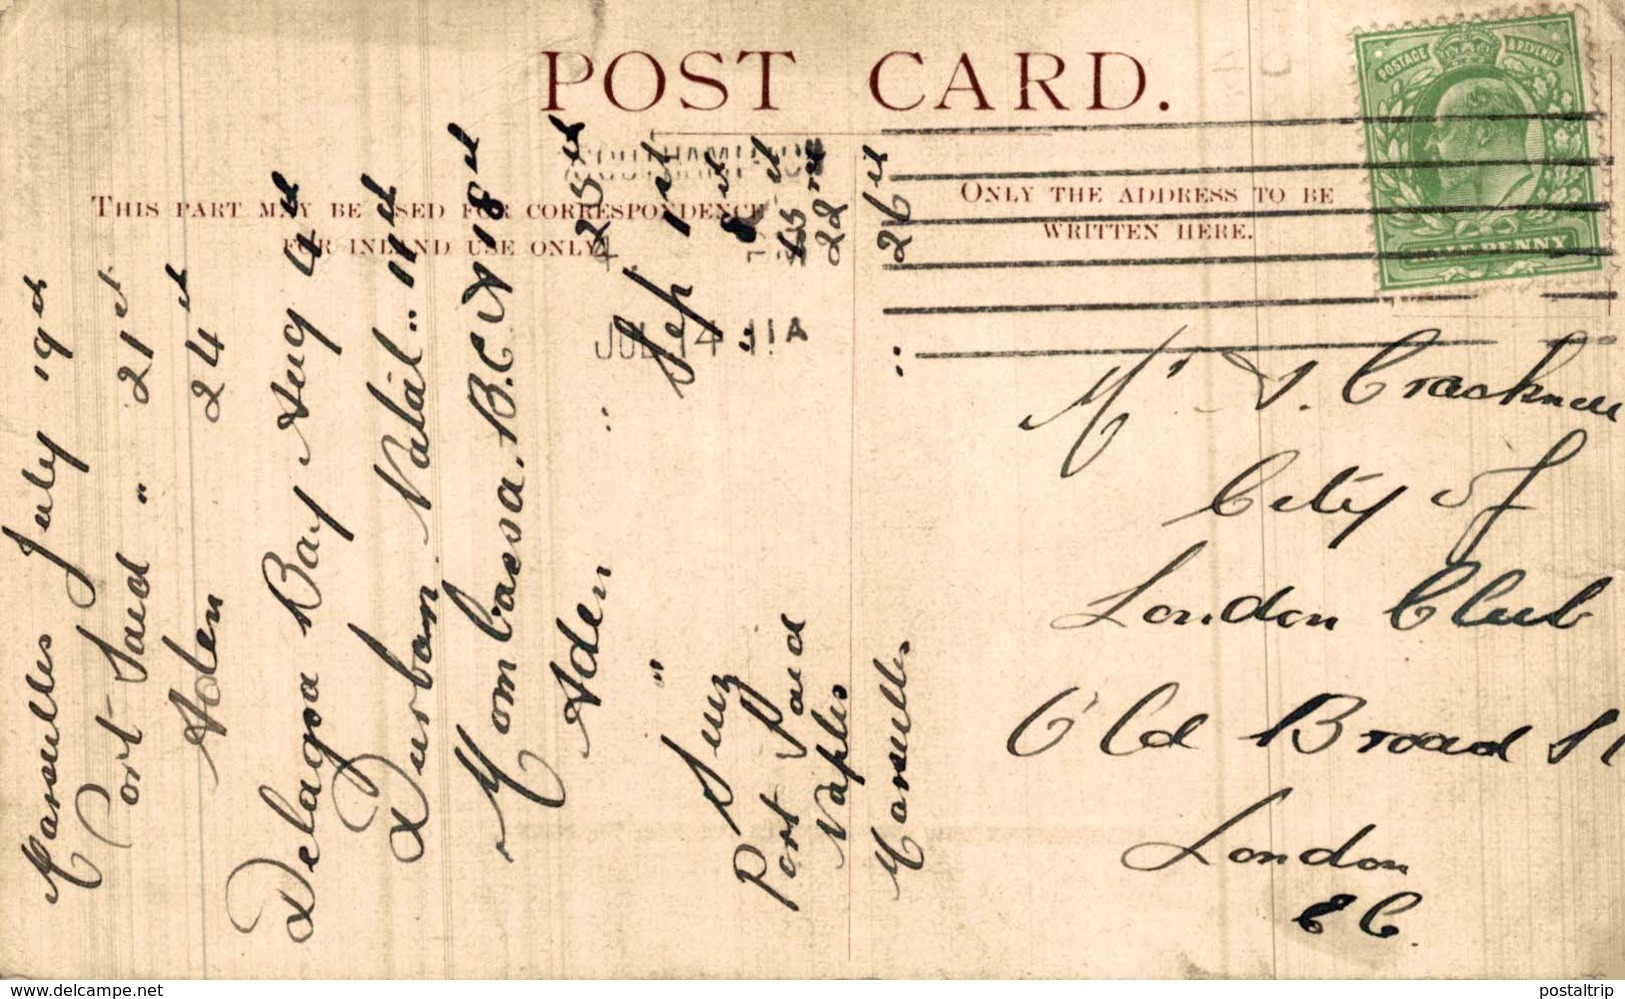 POST CARD.
THIS PART MAY BE USED FOR CORRESPONDENCE
FOR INLAND USE ONLY.
ONLY THE ADDRESS TO BE
WRITTEN HERE.
POSTAGE & REVENUE
HALF PENNY
SOUTHAMPTON
JUL 14 11A
Marseilles July 19th
Port Said " 21st
Aden 24th
Delagoa Bay Aug 4th
Durban Natal " 11th
Mombassa. B.C.A 18th
Aden 25th
" Sep 1st
Suez 8th
Port Said
Naples 22nd
Marseilles " 26th
Mr J. Cracknell
City of
London Club
Old Broad St
London
E C.
www.delcampe.net
postaltrip